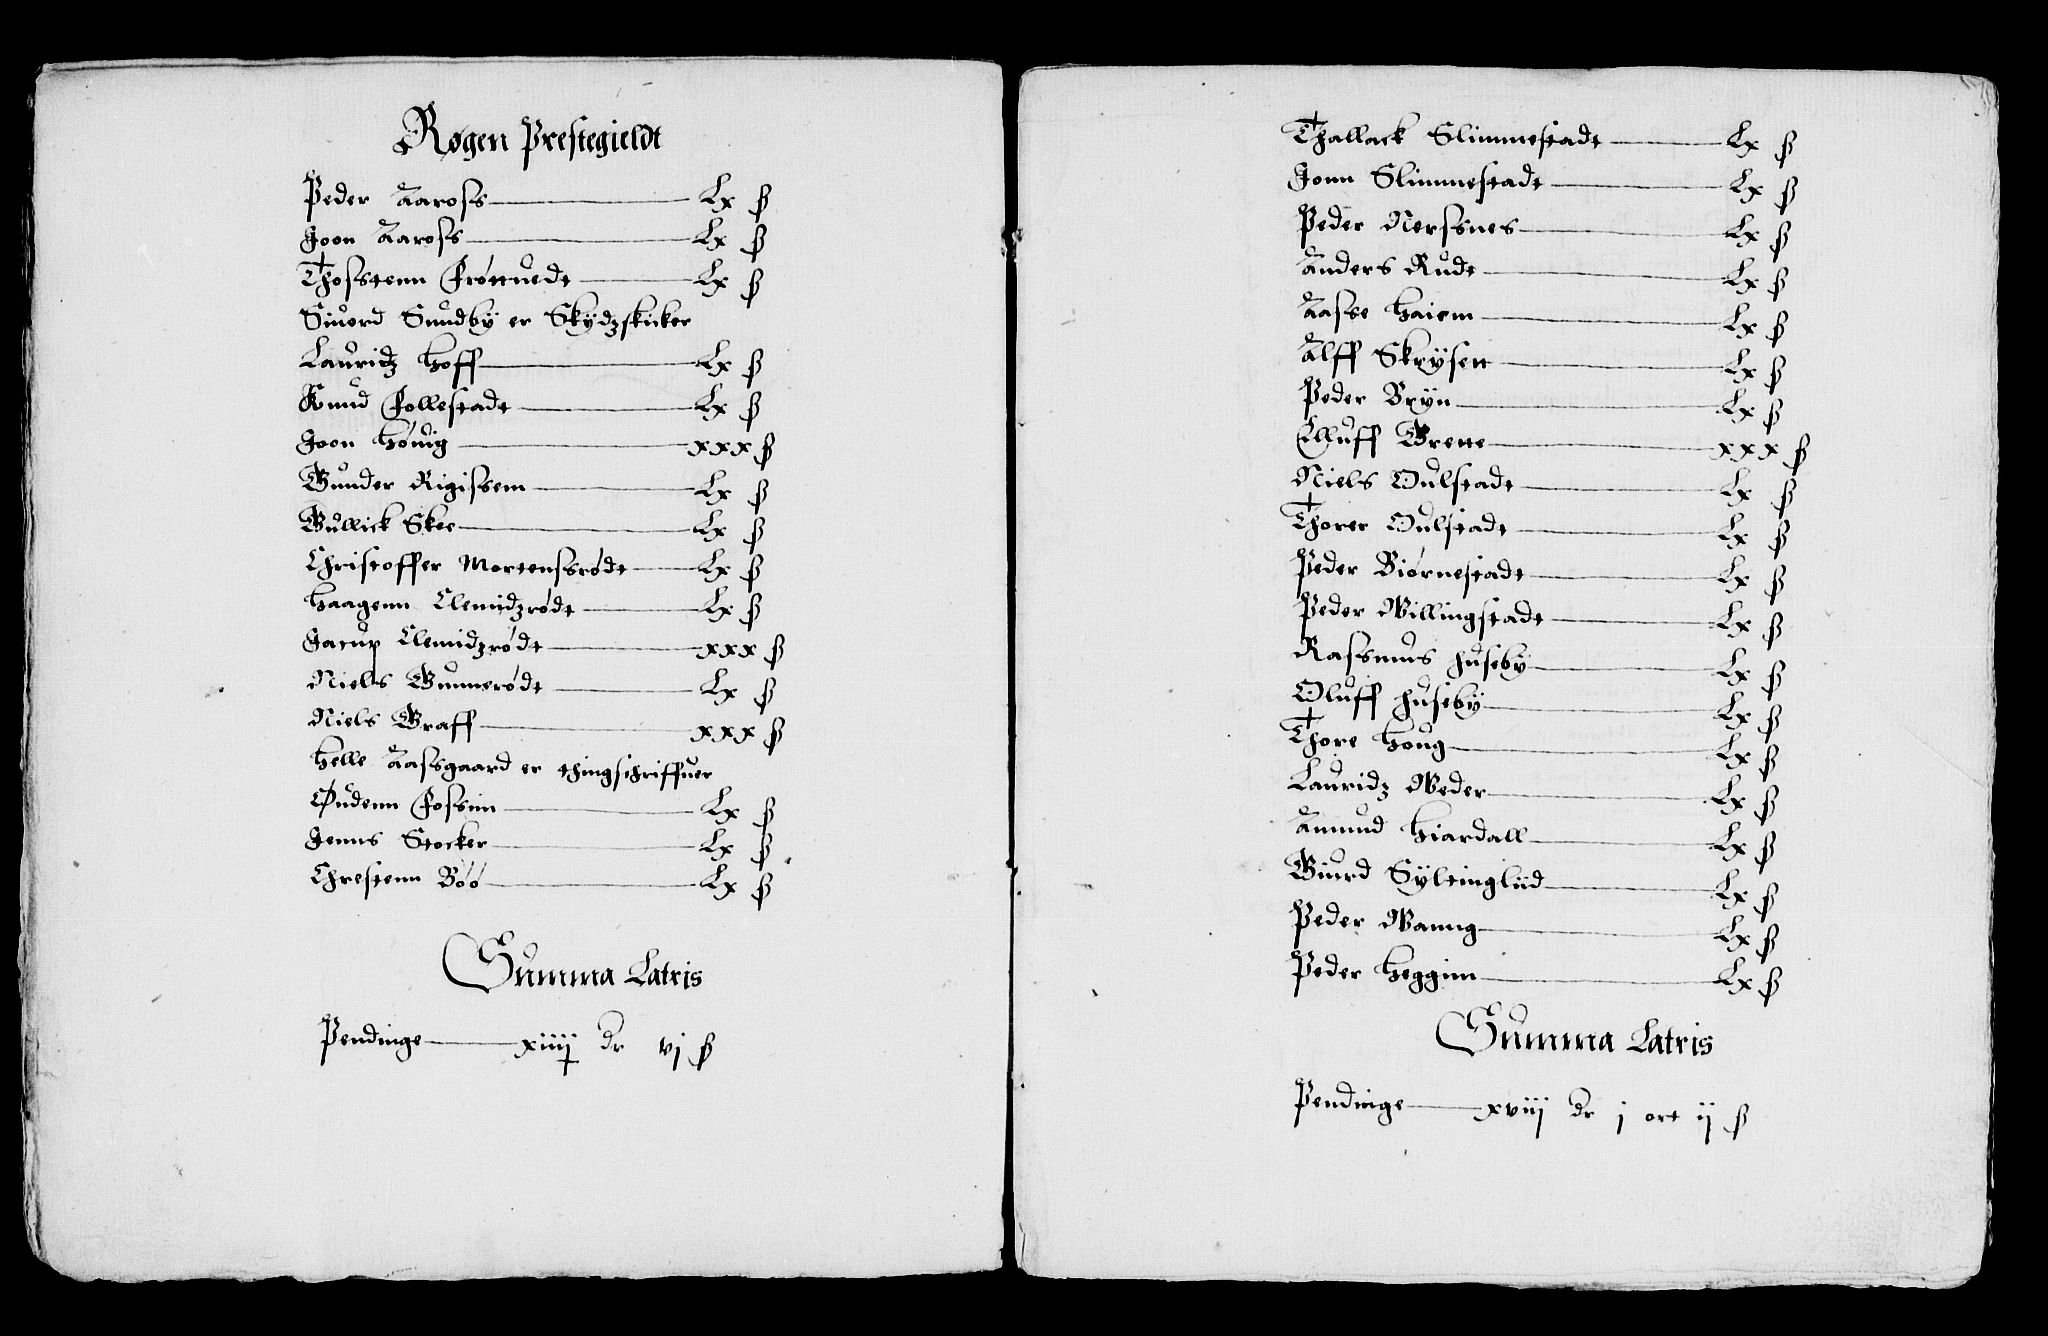 Røgen Prestegieldt
Peder Aaross Lx ß
Joon Aaross Lx ß
Thosstenn Frøttuedt Lx ß
Siuord Sundby er Skydzskicker
Lauridz Hoff Lx ß
Knud Follestadt Lx ß
Joon Høuig xxx ß
Gunder Rigissem Lx ß
Gullick Skee Lx ß
Christoffer Mortenssrødt Lx ß
Haagenn Clemidzrødt Lx ß
Jacup Clemidzrødt xxx ß
Niels Gunnerødt Lx ß
Niels Graff xxx ß
Helle Aassgaard er thingschriffuer
Øudenn Fossum Lx ß
Jenns Stocker Lx ß
Chrestenn Bøø Lx ß
Summa Latris
Pendinge xiiij dr vj ß
Thallack Slimmestadt Lx ß
Jonn Slimmestadt Lx ß
Peder Nerssnes Lx ß
Anders Rudt Lx ß
Aasse Haiem Lx ß
Alff Skrÿsett Lx ß
Peder Brÿn Lx ß
Elluff Grette xxx ß
Niels Oulstadt Lx ß
Thorer Oulstadt Lx ß
Peder Biørnestadt Lx ß
Peder Willingstadt Lx ß
Rassmus Huseby Lx ß
Oluff Husebÿ Lx ß
Thore Houg Lx ß
Lauridz Weder Lx ß
Amund Hiardall Lx ß
Giurd Sÿltingliid Lx ß
Peder Wanng Lx ß
Peder Heggim Lx ß
Summa Latris
Pendinge xviij dr j ort ij ß